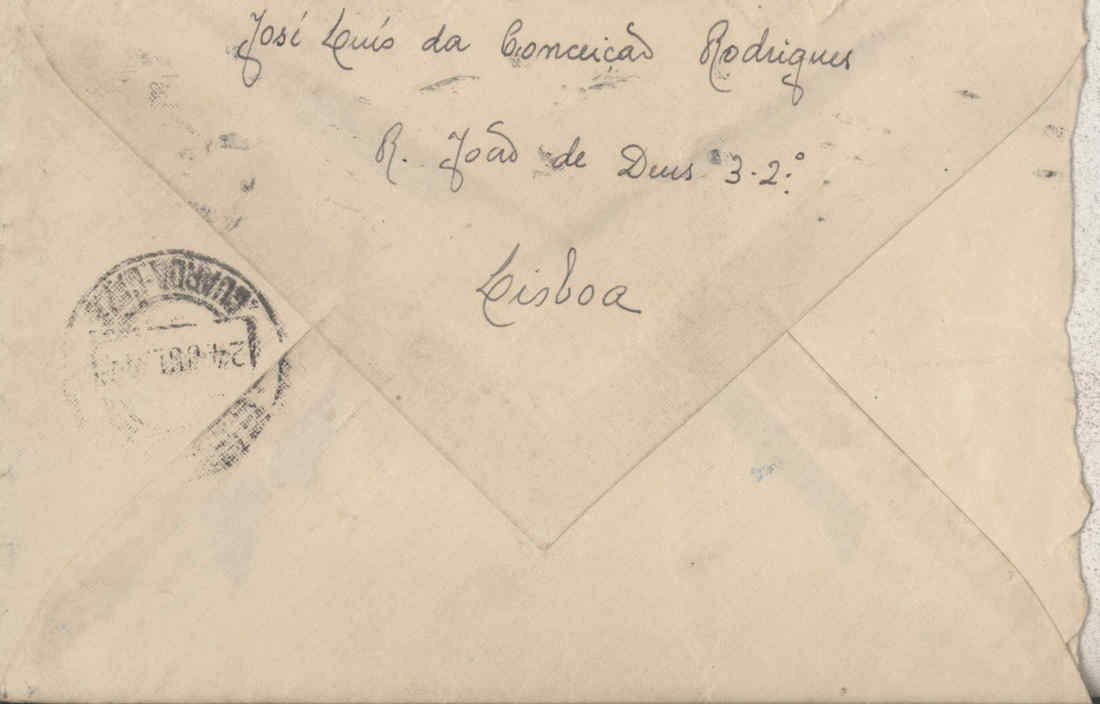 José Luís da Conceição Rodrigues
R. João de Deus 3-2.º
Lisboa
GUARDA
24